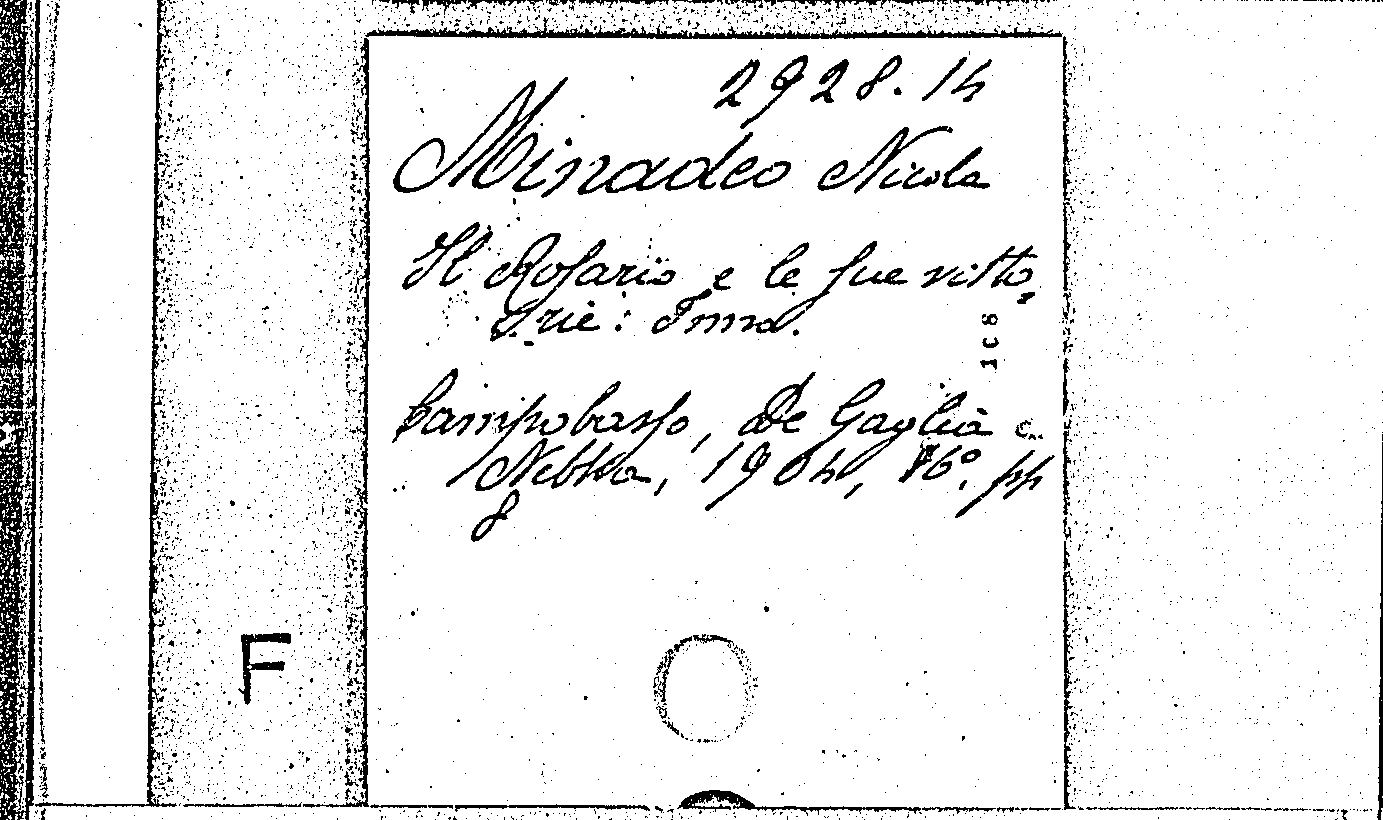 2928.14
Minadeo Nicola
Il Rosario e le sue vitto
rie: Inno.
108
Campobasso, De Gaglia e
Nebbia, 1904, 16°, pp
8
F